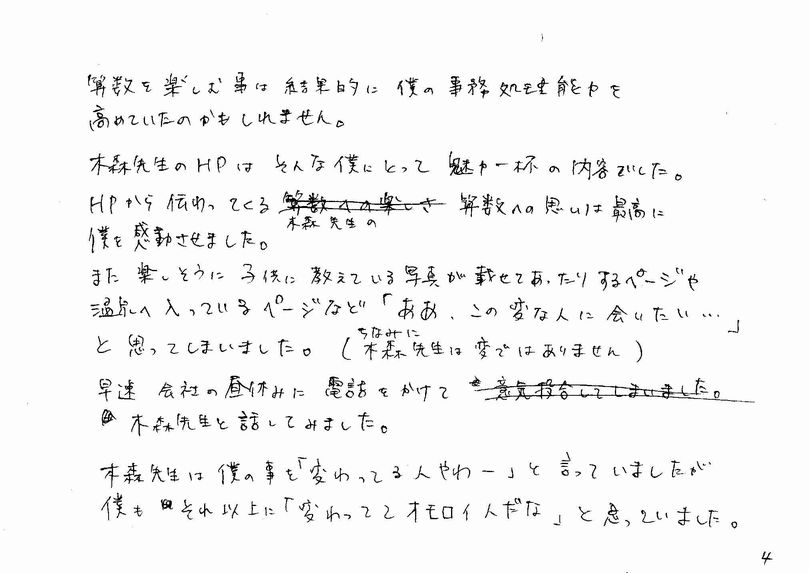 算数を楽しむ事は結果的に僕の事務処理能力を
高めていたのかもしれません。
木森先生のHPはそんな僕にとって魅力一杯の内容でした。
HPから伝わってくる 算数への楽しさ 算数への思いは最高に
木森先生の
僕を感動させました。
また楽しそうに子供に教えている写真が載せてあったりするページや
温泉へ入っているページなど「ああ、この変な人に会いたい…」
と思ってしまいました。(木森先生は変ではありません)
ちなみに
早速 会社の昼休みに電話をかけて 意気投合してしまいました。
木森先生と話してみました。
木森先生は僕の事を「変わってる人やわー」と言っていましたが
僕もそれ以上に「変わっててオモロイ人だな」と思っていました。
4